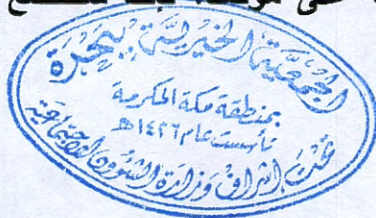 الجمعية الخيرية ببحرة
بمنطقة مكة المكرمة
تأسست عام ١٤٢٦هـ
تحت إشراف وزارة الشؤون الاجتماعية